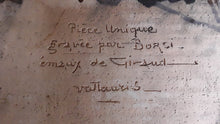 Pièce Unique
gravée par Borsi
émaux de Giraud
vallauris